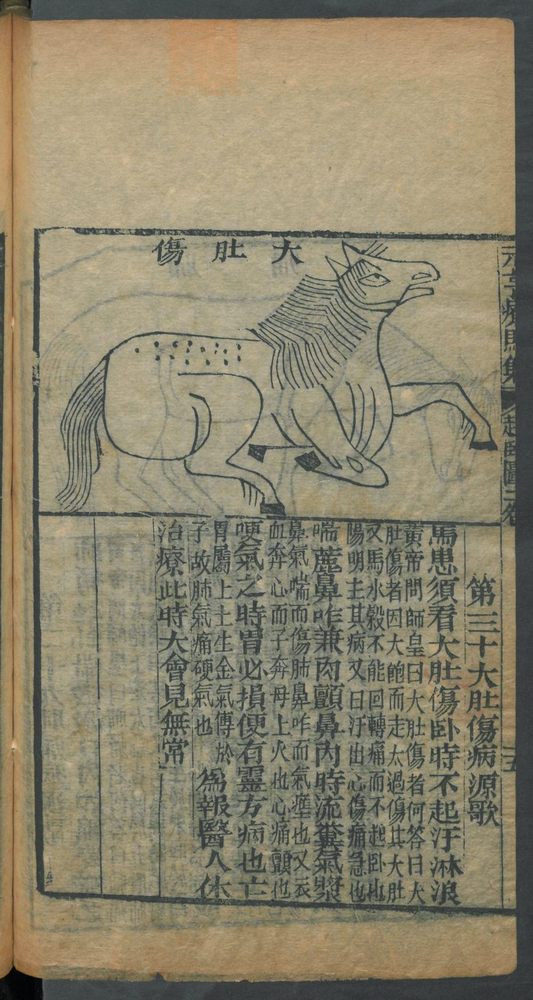 元亨療馬集 起臥圖二卷
十五
大肚傷
第三十大肚傷病源歌
馬患須看大肚傷卧時不起汗淋浪
黃帝問師皇曰大肚傷者何答曰大
肚傷者因大飽而走太過傷其大肚
又馬水穀不能回轉痛而不起卧也
陽明主其病又曰汗出心傷痛急也
喘麄鼻咋兼肉顫鼻內時流糞氣漿
鼻氣喘而傷肺鼻咋而氣壅也又云
血奔心而子奔母上火也心痛顫也
哽氣之時胃必損便有靈方病也亡
胃屬土土生金氣傳於
子故肺氣痛硬氣也
為報醫人休
治療此時大會見無常